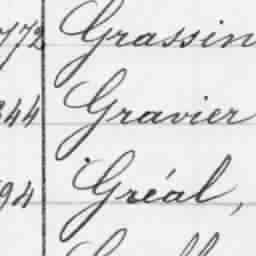 772 Grassin
344 Gravier
94 Gréal,